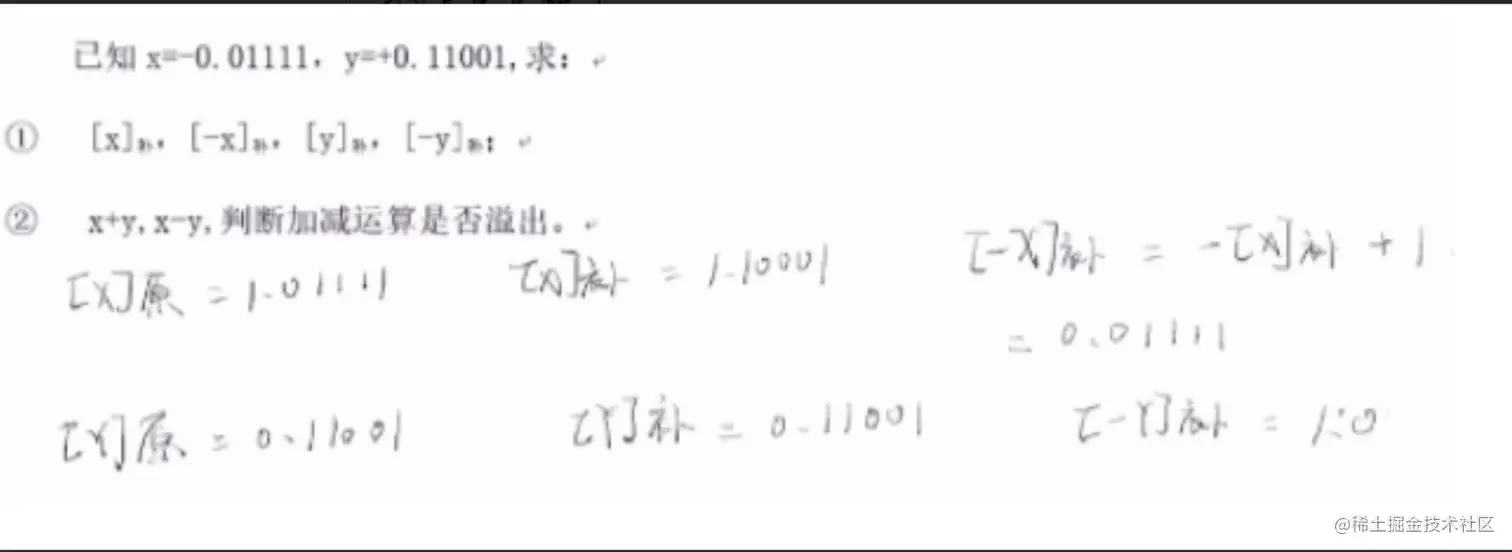 已知 x=-0.01111，y=+0.11001,求：
① [x]补，[-x]补，[y]补，[-y]补；
② x+y,x-y,判断加减运算是否溢出。
[X]原 = 1.01111 [X]补 = 1.10001 [-X]补 = -[X]补 + 1
= 0.01111
[Y]原 = 0.11001 [Y]补 = 0.11001 [-Y]补 = 1.0
@稀土掘金技术社区